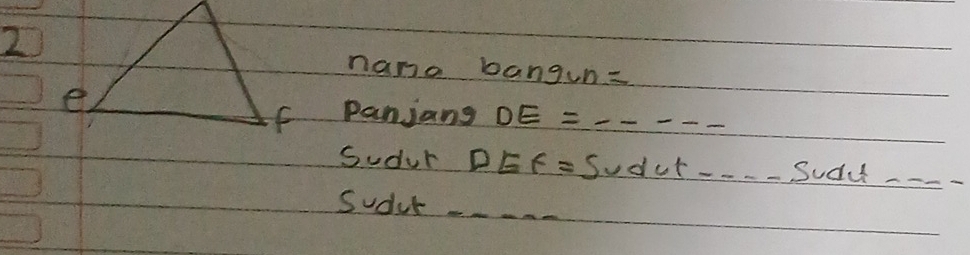 2
nama bangun =
e f Panjang DE = - - - - -
Sudut DEF = Sudut - - - - Sudut - - - -
Sudut - - - - -